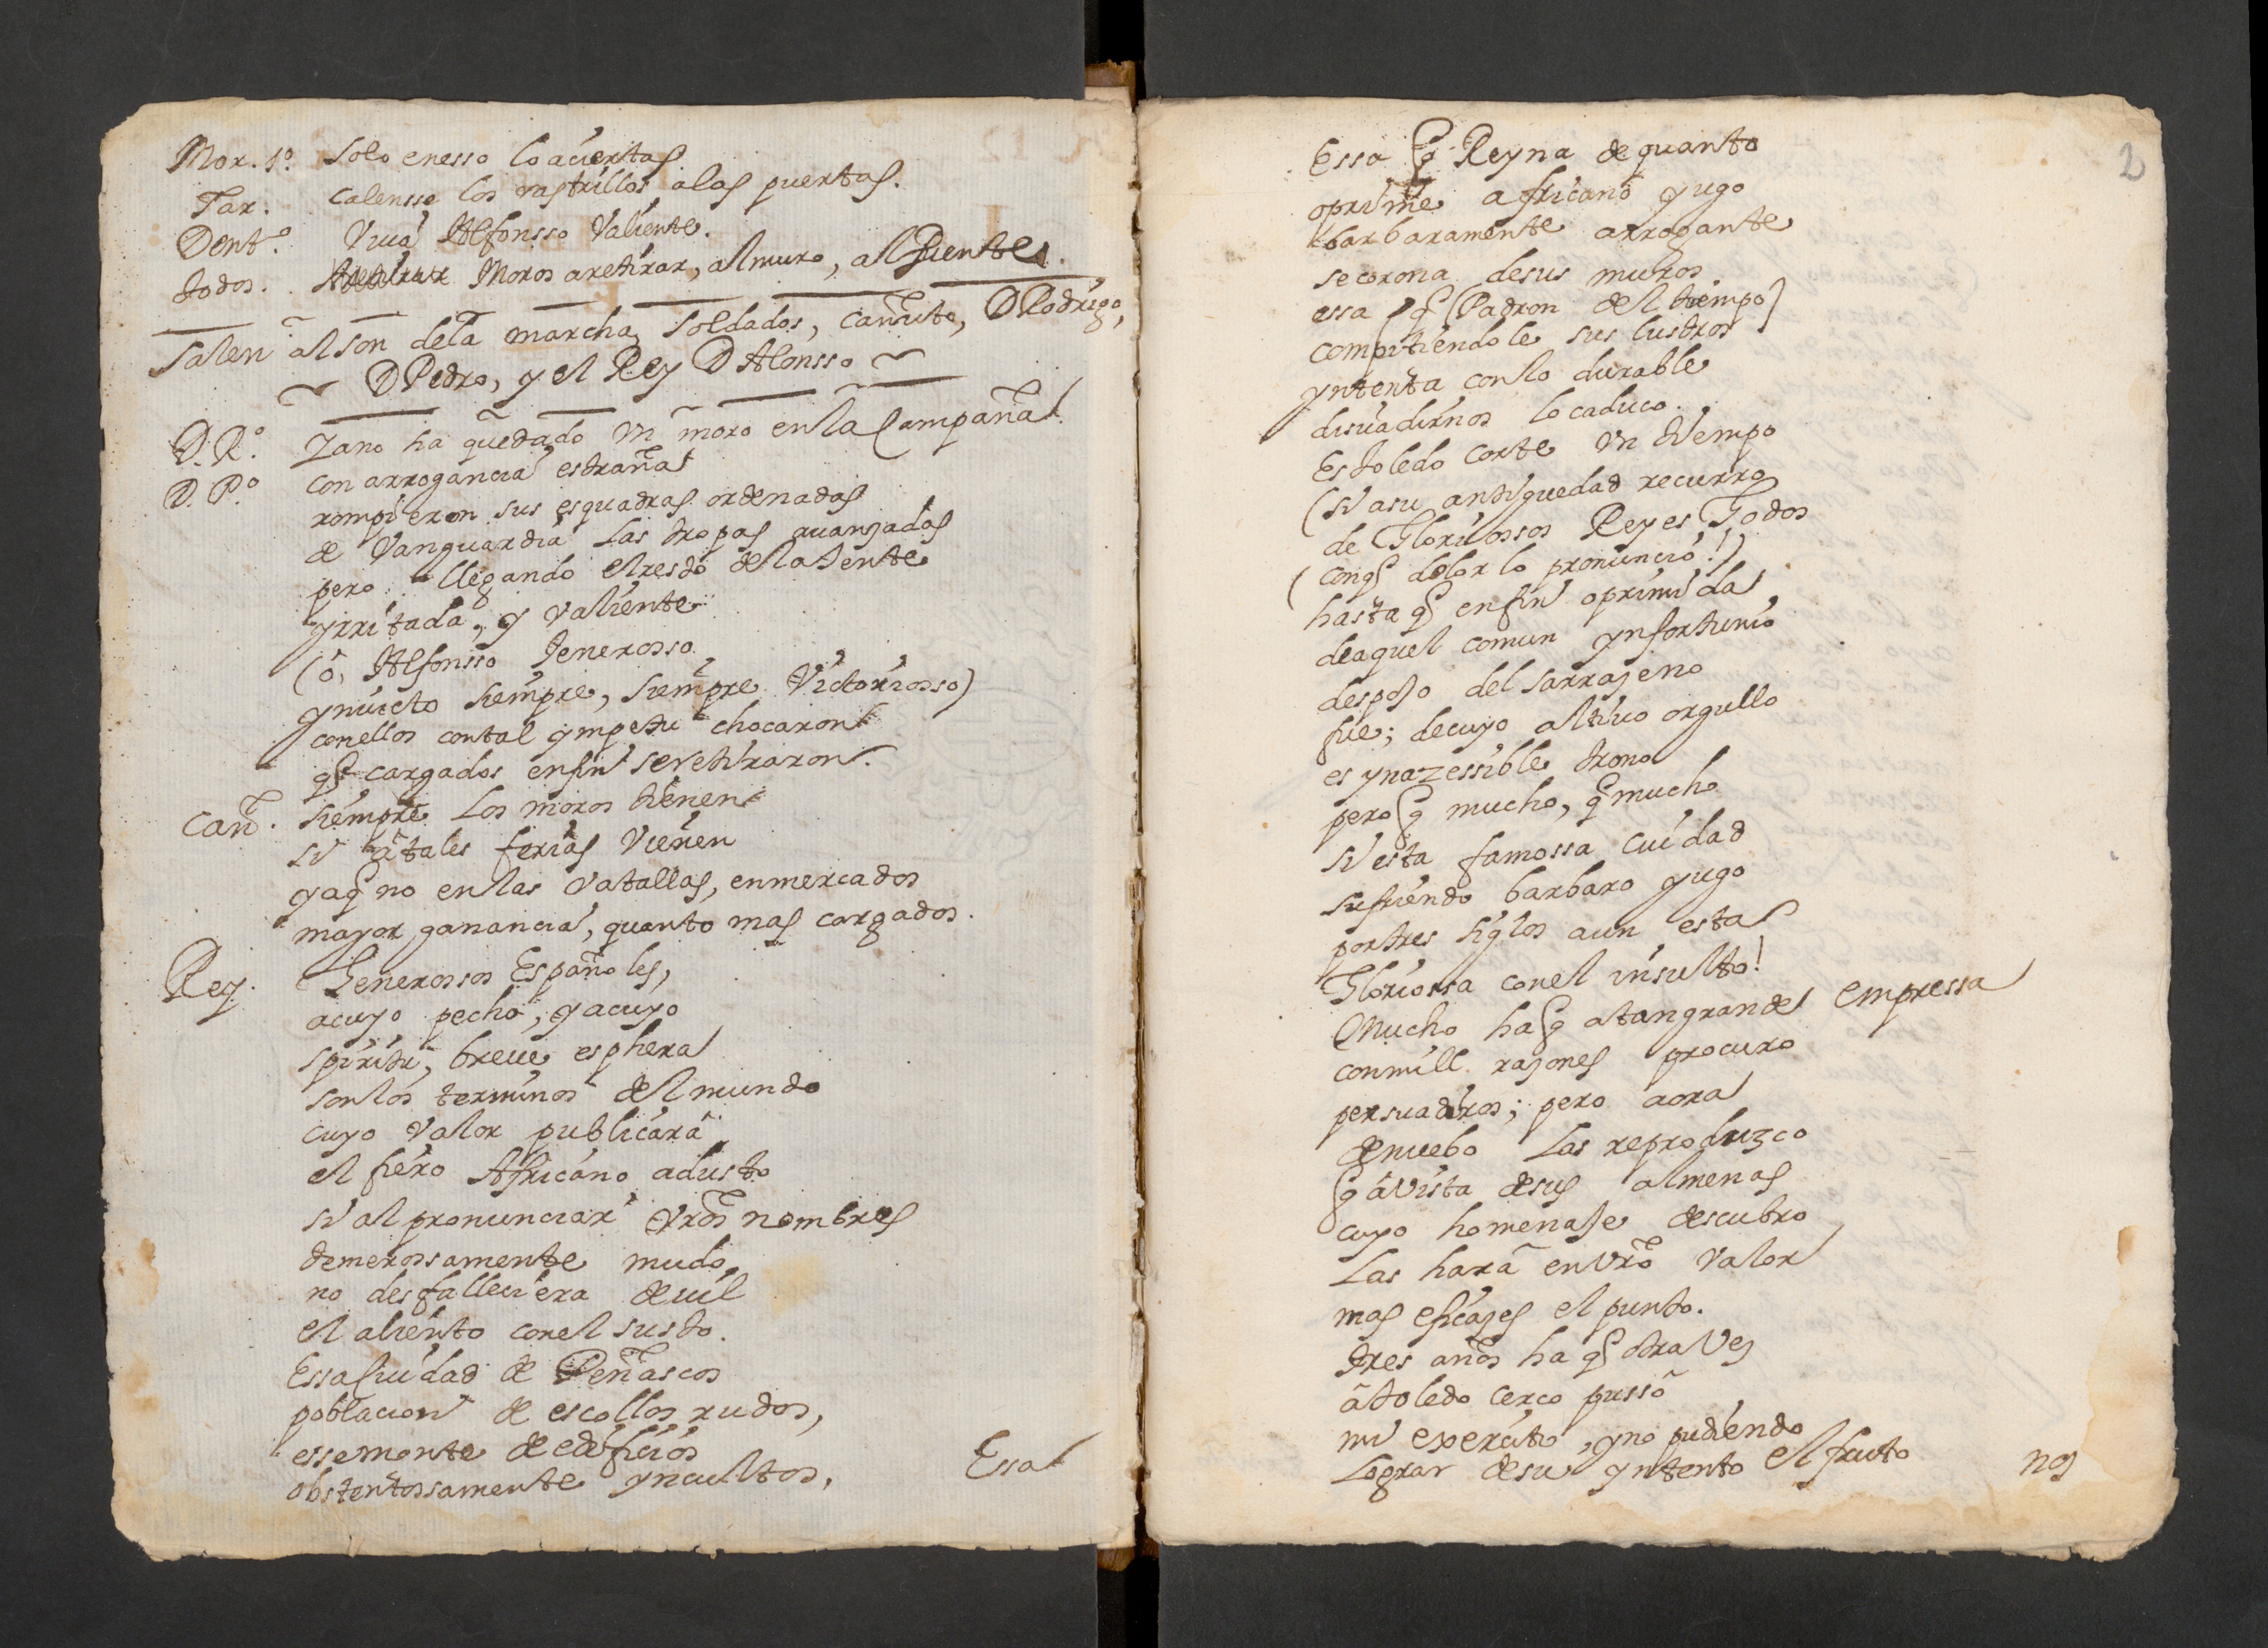 Mor. 1º. Solo enesso lo aciertas
Tar. Calensse los rastrillos alas puertas.
Dentº. Viua Alfonsso Valiente.
todos. Moros aretirar, almuro, al Puente.
Salen al son dela marcha, Soldados, Cañuto, D Rodrigo,
D Pedro, y el Rey D Alonsso
D. Rº. Yano ha quedado Vn moro enla Campaña.
D. Pº. Con arrogancia estraña
rompieron sus esquadras ordenadas
de Vanguardia las tropas auanzadas
pero llegando el resto dela Jente
yrritada, y valiente
(ô, Alfonsso Jenerosso
ynuicto siempre, siempre Victoriosso)
conellos contal ympetu chocaron
q̃ cargados enfin seretiraron.
Cañ. Siempre Los moros tienen
si âtales ferias Vienen
yaq̃ no enlas Vatallas, enmercados
mayor ganancia, quanto mas cargados.
Rey. Generossos Españoles,
acuyo pecho, yacuyo
spiritu, breue esphera
sonlos terminos del mundo
cuyo Valor publicarâ
el fiero Africano adusto
si al pronunciar Vrõs nombres
temerossamente mudo,
no desfalleciera devil
el aliento conel susto.
Essa Ciudad de Peñascos
poblacion de escollos rudos,
essemonte de edificios
obstentossamente yncultos,
Essa
2
Essa q̃ Reyna de quanto
oprime africano yugo
barbaramente arrogante
se corona desus muros
essa q̃ (Padron del tiempo)
compitiendole sus lustros
yntenta conlo durable
disuadirnos lo caduco.
Es toledo Corte Vn tiempo
(si asu antiguedad recurro
de Gloriossos Reyes Godos
(conq̃ dolor lo pronuncio!)
hasta q̃ enfin oprimida
deaquel comun ynfortunio
despojo del Sarrazeno
fue; decuyo altiuo orgullo
es ynazessible trono
pero q̃ mucho, q̃ mucho
si esta famossa Ciudad
sufriendo barbaro yugo
portres siglos aun esta
Gloriossa conel insulto!
Mucho ha q̃ atangrande empressa
conmill razones procuro
persuadiros; pero aora
denuebo las reproduzco
q̃ âvista desus almenas
cuyo homenaje descubro
Las harâ envrõ Valor
mas eficazes el punto.
tres años ha q̃ otra Vez
âtoledo cerco pusso
mi exercito, yno pudiendo
Lograr desu yntento el fruto
nos